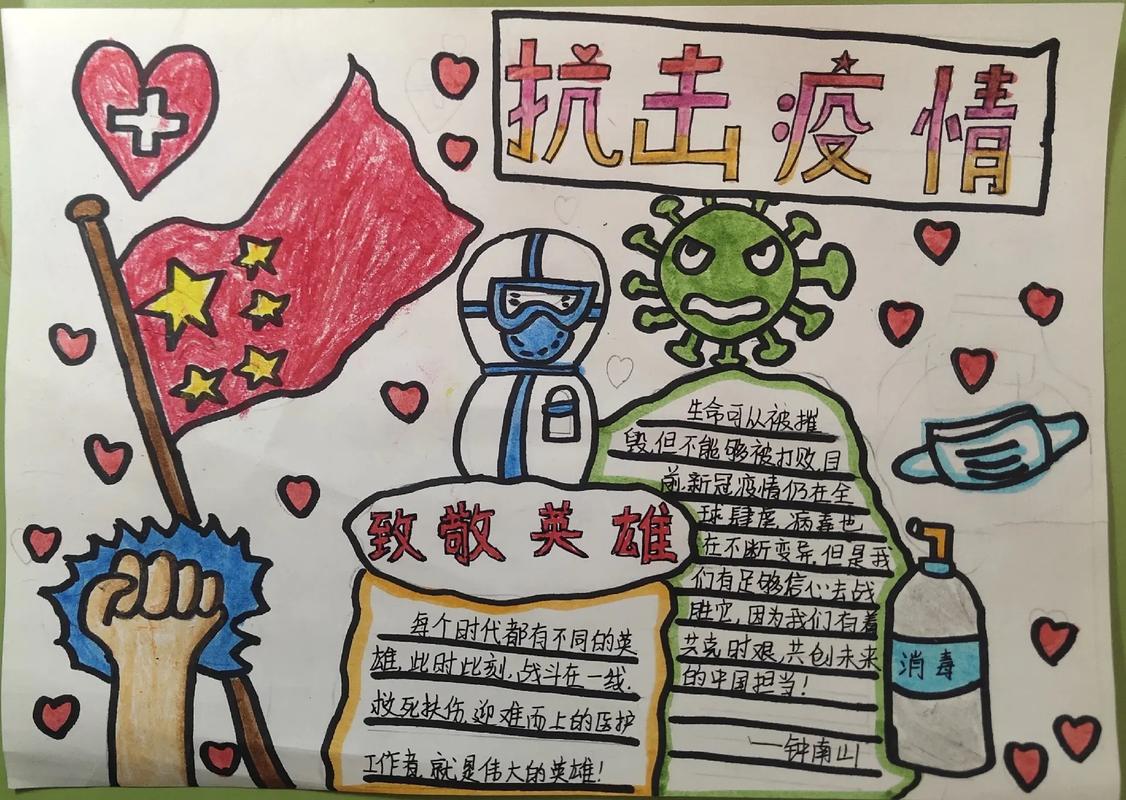 抗击疫情
生命可以被摧
毁,但不能够被打败,目
前新冠疫情仍在全
球肆虐,病毒也
在不断变异,但是我
们有足够信心去战
胜它,因为我们有着
共克时艰,共创未来
的中国担当!
—钟南山
致敬英雄
每个时代都有不同的英
雄,此时此刻,战斗在一线,
救死扶伤,迎难而上的医护
工作者,就是伟大的英雄!
消毒